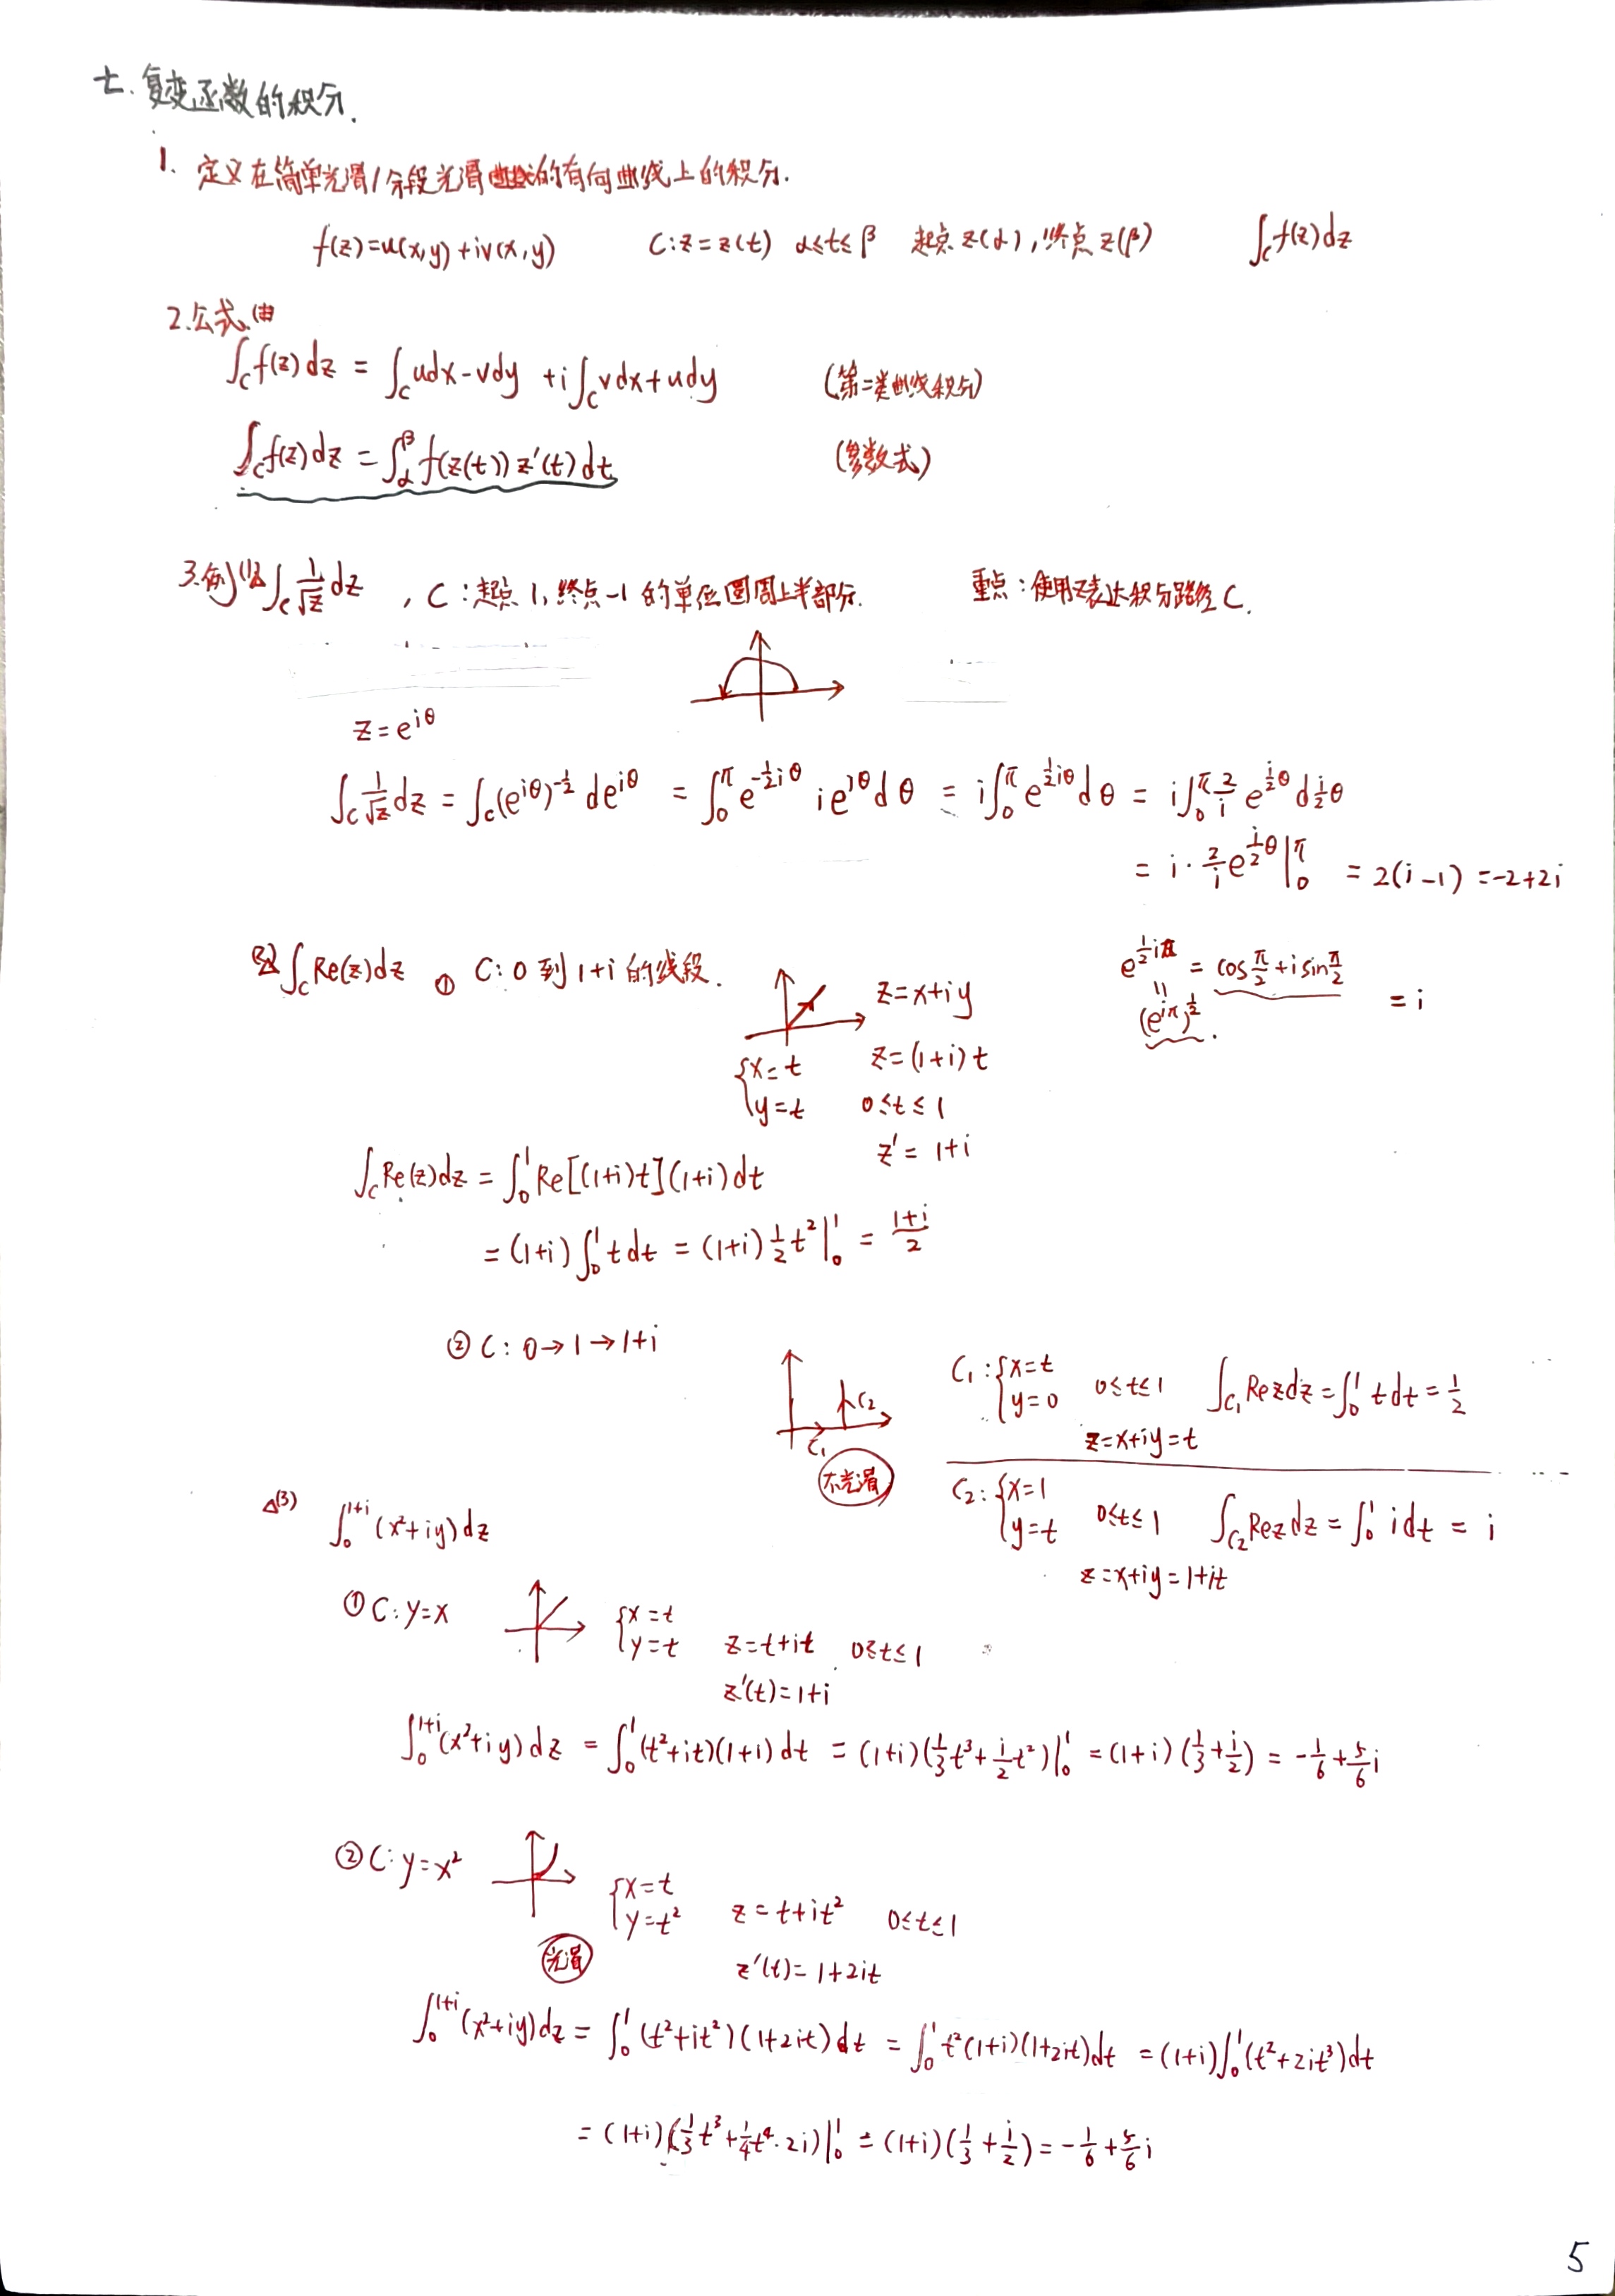 七. 复变函数的积分.
1. 定义在简单光滑/分段光滑的有向曲线上的积分.
f(z)=u(x,y)+iv(x,y) C:z=z(t) α≤t≤β 起点z(α),终点z(β) ∫_C f(z)dz
2.公式.
∫_C f(z)dz = ∫_C udx-vdy +i∫_C vdx+udy (第二类曲线积分)
∫_C f(z)dz = ∫_α^β f(z(t))z'(t)dt (参数式)
3.例(1) ∫_C 1/√z dz , C:起点1,终点-1的单位圆周上半部分. 重点:使用z表达积分路径C.
z=e^{iθ}
∫_C 1/√z dz = ∫_C (e^{iθ})^{-1/2} de^{iθ} = ∫_0^π e^{-1/2 iθ} ie^{iθ}dθ = i∫_0^π e^{1/2 iθ}dθ = i∫_0^π 2/i e^{i/2 θ} d i/2 θ
= i·2/i e^{i/2 θ}|_0^π = 2(i-1) =-2+2i
(2) ∫_C Re(z)dz ① C:0到1+i的线段.
e^{1/2 iπ} = cos π/2 + i sin π/2 = i
= (e^{iπ})^{1/2}.
z=x+iy
{x=t z=(1+i)t
y=t 0≤t≤1
z'=1+i
∫_C Re(z)dz = ∫_0^1 Re[(1+i)t](1+i)dt
= (1+i)∫_0^1 tdt = (1+i) 1/2 t²|_0^1 = (1+i)/2
② C: 0→1→1+i
C₂
C₁
不光滑
C₁:{x=t y=0 0≤t≤1 ∫_{C₁} Rezdz=∫_0^1 tdt=1/2
z=x+iy=t
C₂:{x=1 y=t 0≤t≤1 ∫_{C₂} Rezdz=∫_0^1 idt = i
z=x+iy=1+it
△(3) ∫_0^{1+i} (x²+iy)dz
① C:y=x {x=t y=t z=t+it 0≤t≤1
z'(t)=1+i
∫_0^{1+i}(x²+iy)dz = ∫_0^1(t²+it)(1+i)dt = (1+i)(1/3 t³+i/2 t²)|_0^1 = (1+i)(1/3+i/2) = -1/6+5/6 i
② C:y=x² {x=t y=t² z=t+it² 0≤t≤1
光滑
z'(t)=1+2it
∫_0^{1+i}(x²+iy)dz = ∫_0^1(t²+it²)(1+2it)dt = ∫_0^1 t²(1+i)(1+2it)dt = (1+i)∫_0^1(t²+2it³)dt
= (1+i)(1/3 t³+1/4 t⁴·2i)|_0^1 = (1+i)(1/3+i/2) = -1/6+5/6 i
5